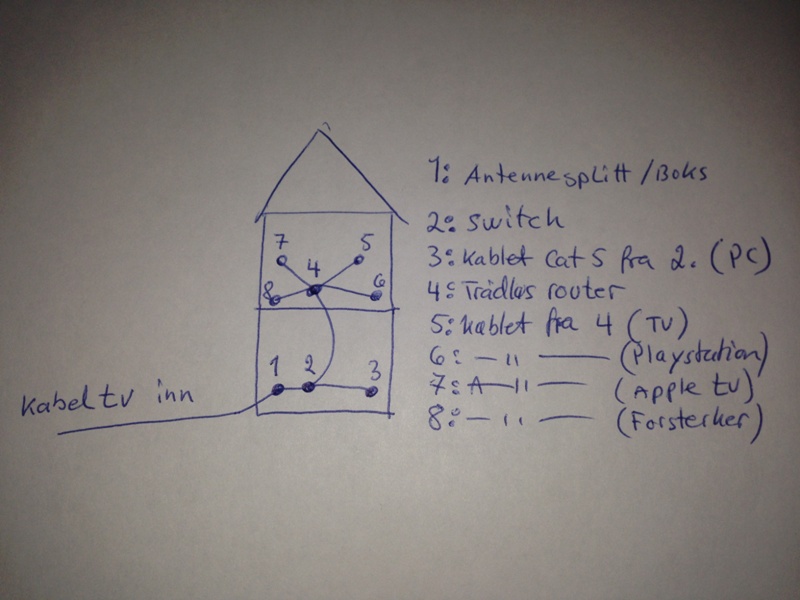 1: Antennesplitt/Boks
2: Switch
3: Kablet Cat 5 fra 2. (PC)
4: Trådløs router
5: Kablet fra 4 (TV)
6: — " — (Playstation)
7: A — " — (Apple tv)
8: — " — (Forsterker)
7
5
4
8
6
1
2
3
Kabel tv inn